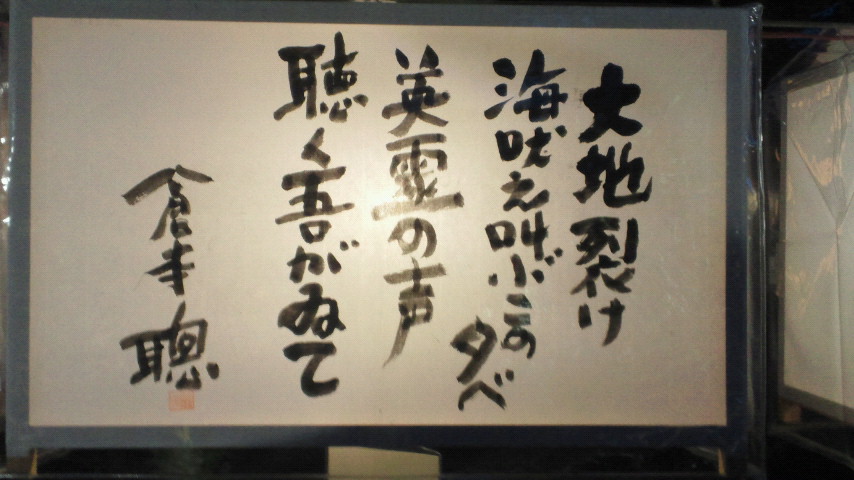 大地裂け
海吠え叫ぶこの
夕べ
英霊の声
聴く吾がゐて
倉寺 聰